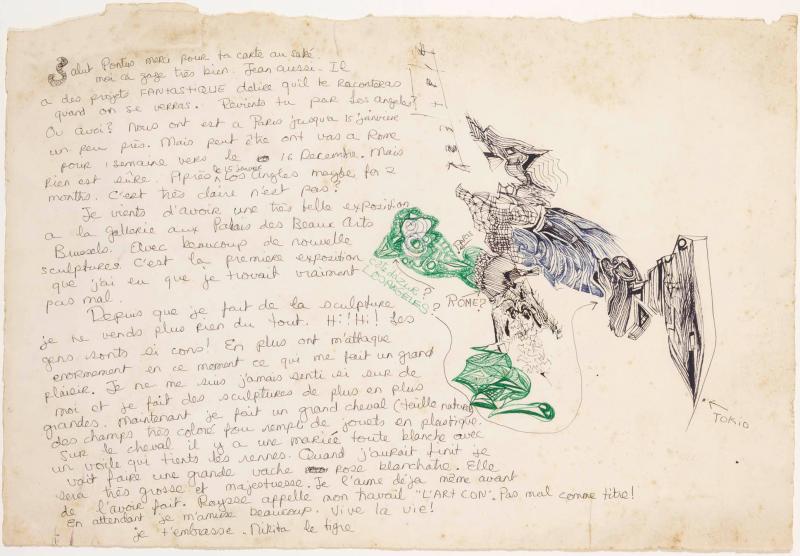 Salut Pontus merci pour ta carte au saké.
moi ça gaze très bien. Jean aussi - Il
a des projets FANTASTIQUE delire qu'il te racontera
quand on se verras. Reviens tu par Los angeles?
Ou quoi? Nous ont est a Paris jusqua 15 janviere
un peu près. Mais peut être ont vas a Rome
pour 1 semaine vers le 16 Decembre. Mais
Rien est sûre. Après le 15 janvier Los Angles maybe for 2
months. C'est très claire n'est pas?
Je vients d'avoir une très belle exposition
a la gallerie aux Palais des Beaux Arts
Brussels. Avec beaucoup de nouvelle
sculptures. C'est la premiere exposition
que j'ai eu que je trouvait vraiment
pas mal.
Depuis que je fait de la sculpture
je ne vends plus rien du tout. Hi! Hi! Les
gens sonts si cons! En plus ont m'attaque
enormement en ce moment ce qui me fait un grand
plaisir. Je ne me suis jamais senti si sur de
moi et je fait des sculptures de plus en plus
grandes. Maintenant je fait un grand cheval (taille nature)
des champs très coloré fou rempli de jouets en plastique.
Sur le cheval il y a une mariée toute blanche avec
un voile qui tients les rennes. Quand j'aurait finit je
vait faire une grande vache rose blanchatre. Elle
sera très grosse et majestuesse. Je l'aime déja même avant
de l'avoir fait. Raysse appelle mon travail "L'ART CON". Pas mal comme titre!
En attendant je m'amuse beaucoup. Vive la vie!
je t'embrasse. Nikita le tigre
PARIS
COTE D'AZUR?
LOS ANGELES?
ROME?
TOKIO